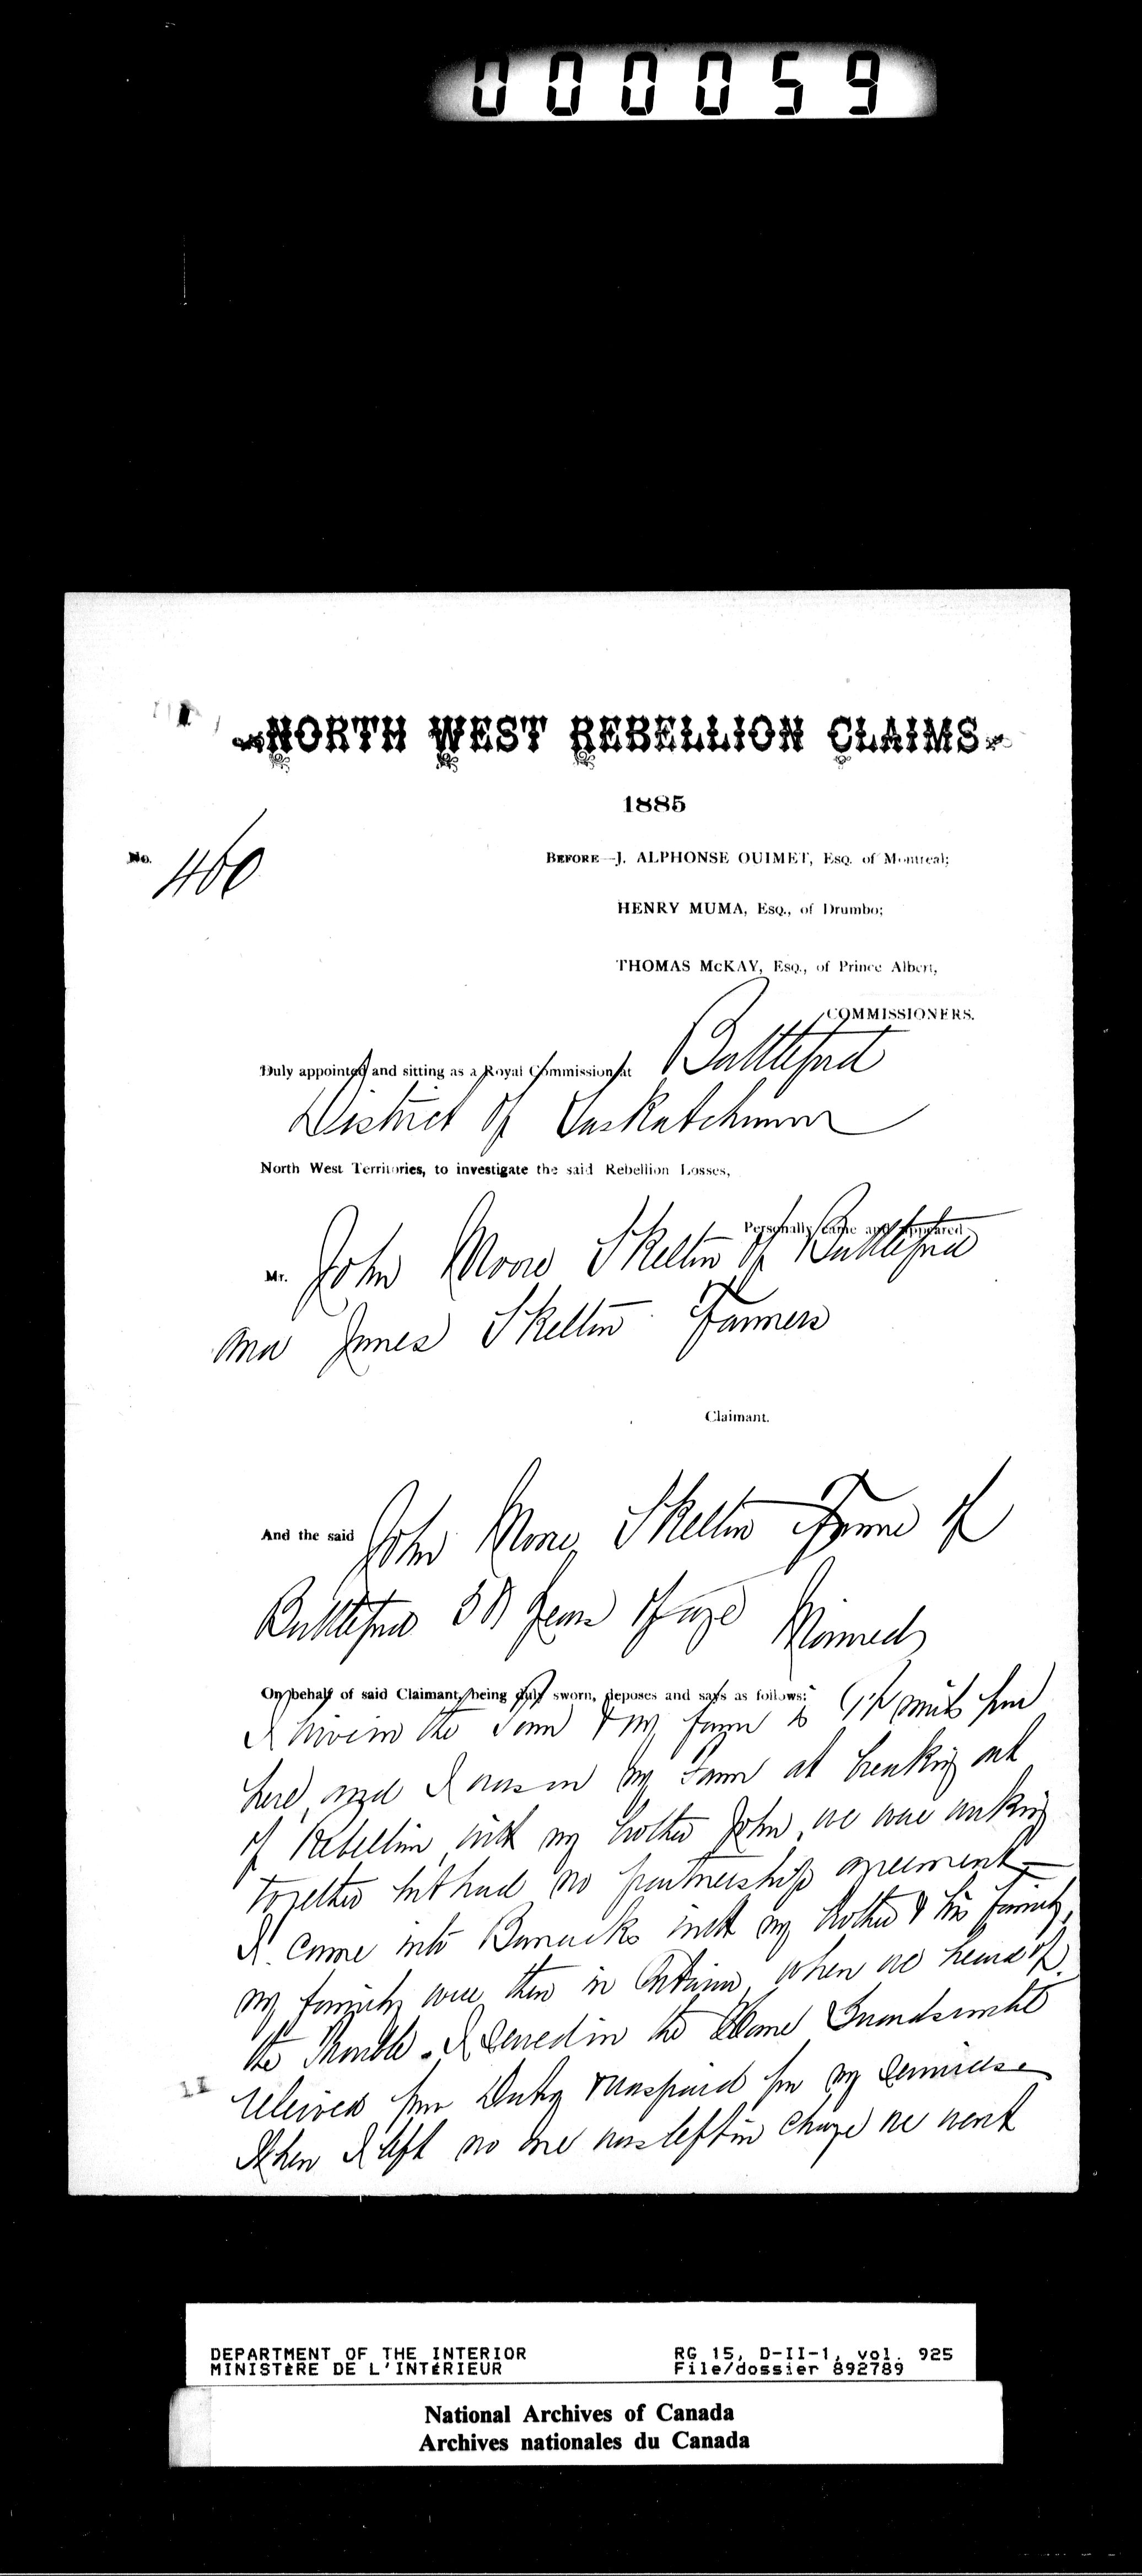 000059
NORTH WEST REBELLION CLAIMS
1885
No. 460
BEFORE—J. ALPHONSE OUIMET, Esq. of Montreal;
HENRY MUMA, Esq., of Drumbo;
THOMAS McKAY, Esq., of Prince Albert,
COMMISSIONERS.
Duly appointed and sitting as a Royal Commission at Battleford
District of Saskatchewan
North West Territories, to investigate the said Rebellion Losses,
Personally came and appeared
Mr. John Moore Skelton of Battleford
and James Skelton Farmers
Claimant.
And the said John Moore Skelton Farmer of
Battleford 38 years of age Married
On behalf of said Claimant, being duly sworn, deposes and says as follows:
I live in the Town & my farm is miles from
here, and I was on my Farm at breaking out
of Rebellion with my brother John, we were working
together but had no partnership agreement
I came into Barracks with my brother & his family,
my family were then in Ontario, when we heard of
the Trouble. I served in the Home Guards until
relieved from Duty & was paid for my services
When I left no one was left in charge we went
DEPARTMENT OF THE INTERIOR
MINISTÈRE DE L'INTÉRIEUR
RG 15, D-II-1, vol. 925
File/dossier 892789
National Archives of Canada
Archives nationales du Canada